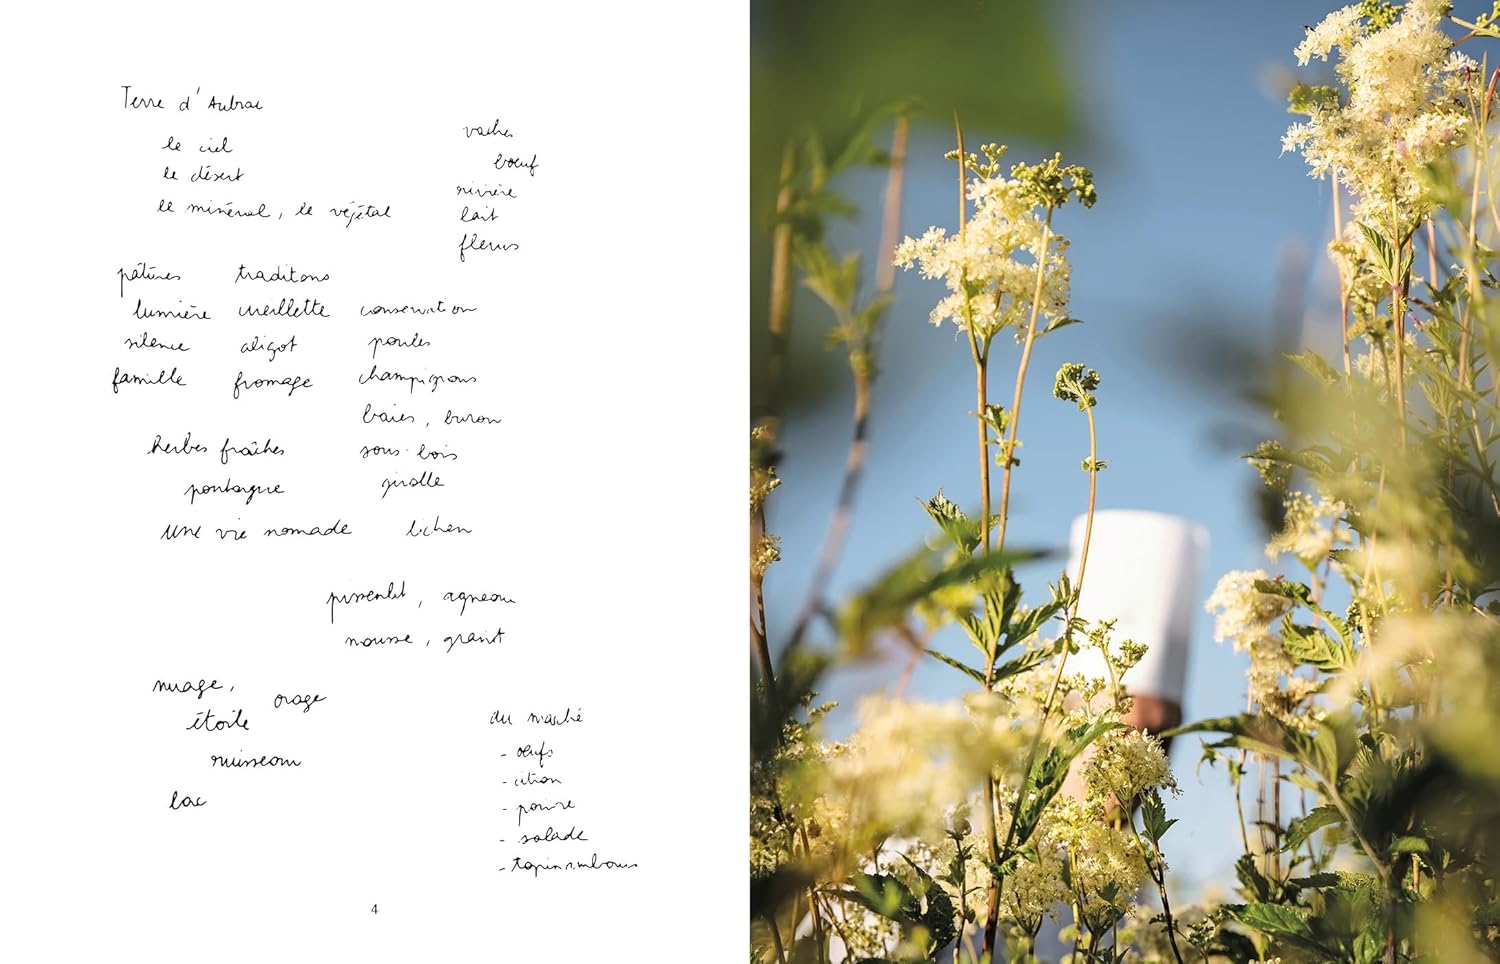 Terre d'Aubrac
le ciel
le désert
le minéral, le végétal
vaches
boeuf
rivière
lait
fleurs
pâtures traditions
lumière cueillette conservation
silence aligot poules
famille fromage champignons
baies, buron
herbes fraîches sous-bois
girolle
une vie nomade lichen
pissenlit, agneau
mousse, granit
nuage,
orage
étoile
ruisseau
lac
du marché
- oeufs
- citron
- poivre
- salade
- topinambours
4